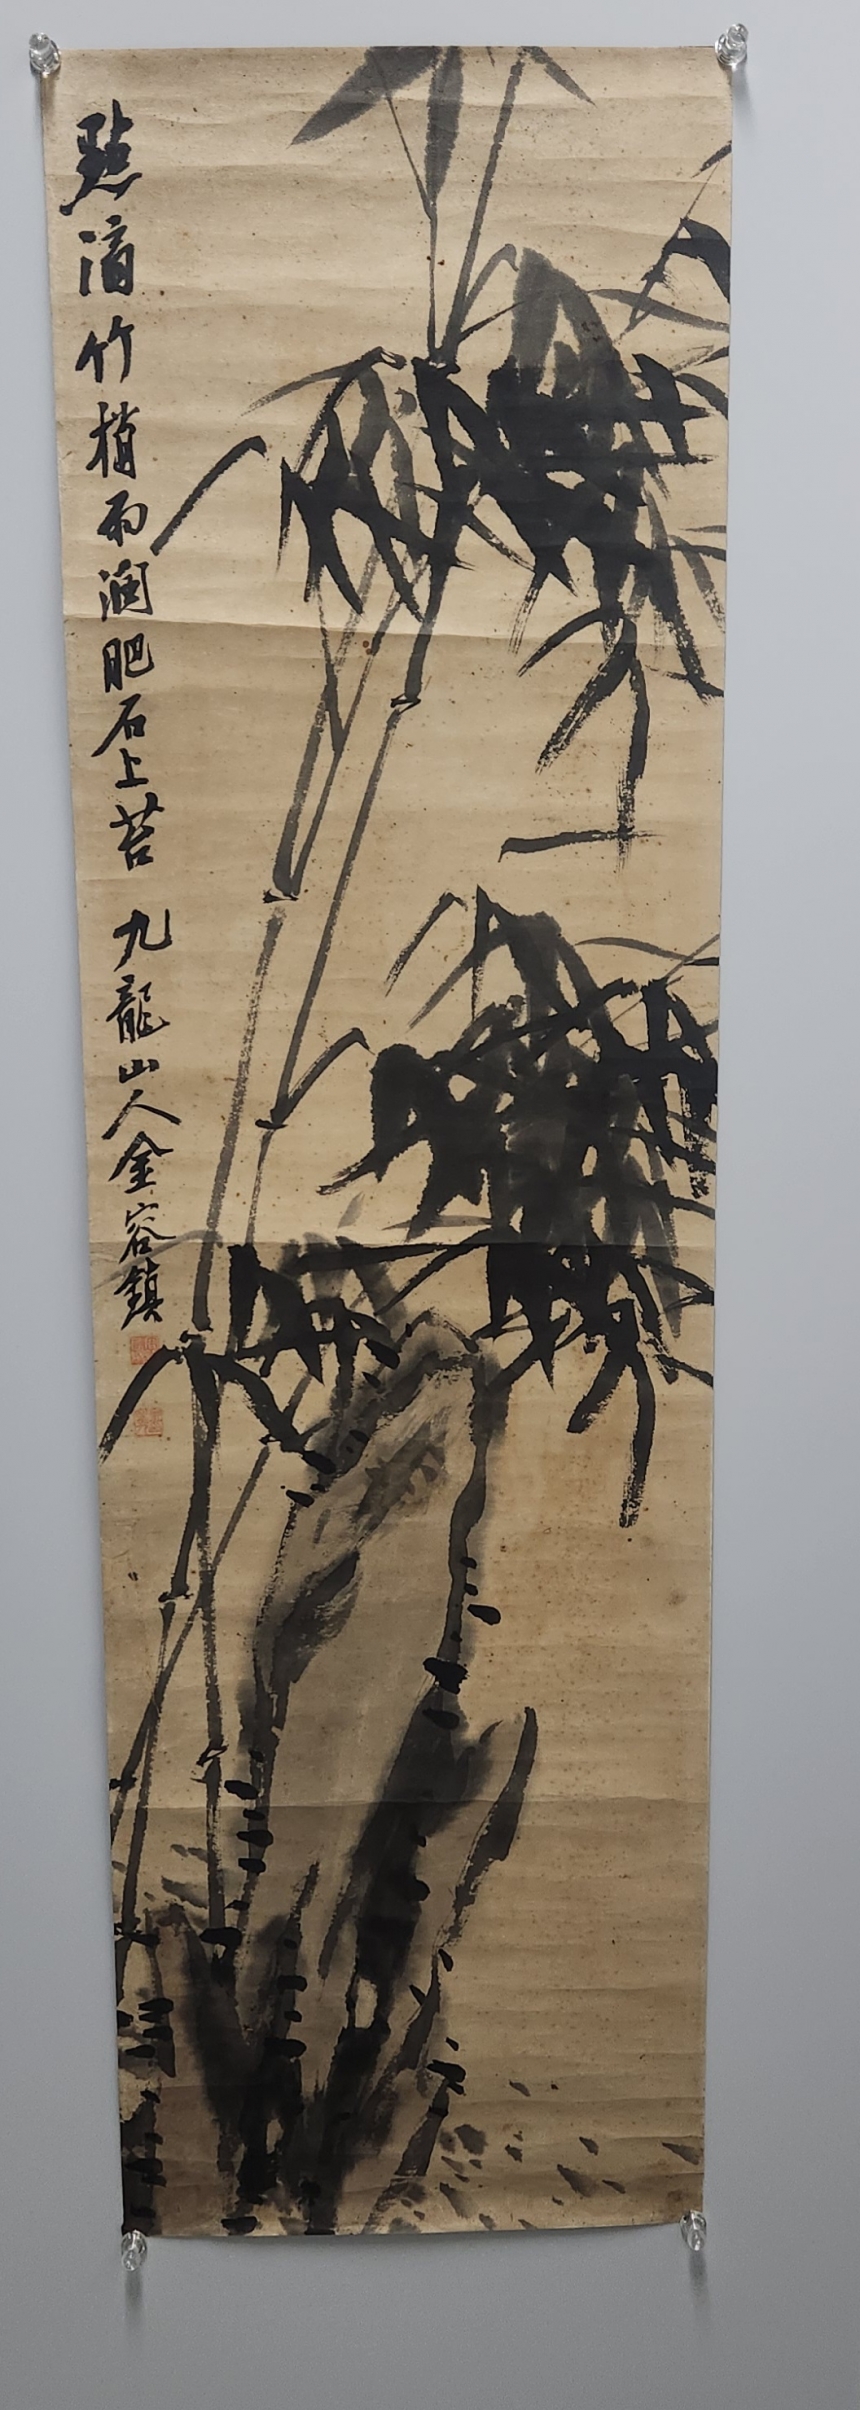 點滴竹梢雨潤肥石上苔 九龍山人金容鎮